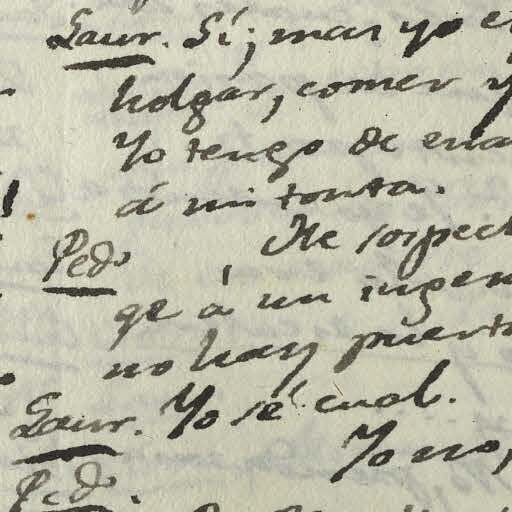 Laur. Sí; mas yo
holgar, comer y
Yo tengo de
á mi tonta.
Pedo He sospec
qe á un ingen
no hay puert
Laur. Yo sé cual.
Yo no,
Pedo.